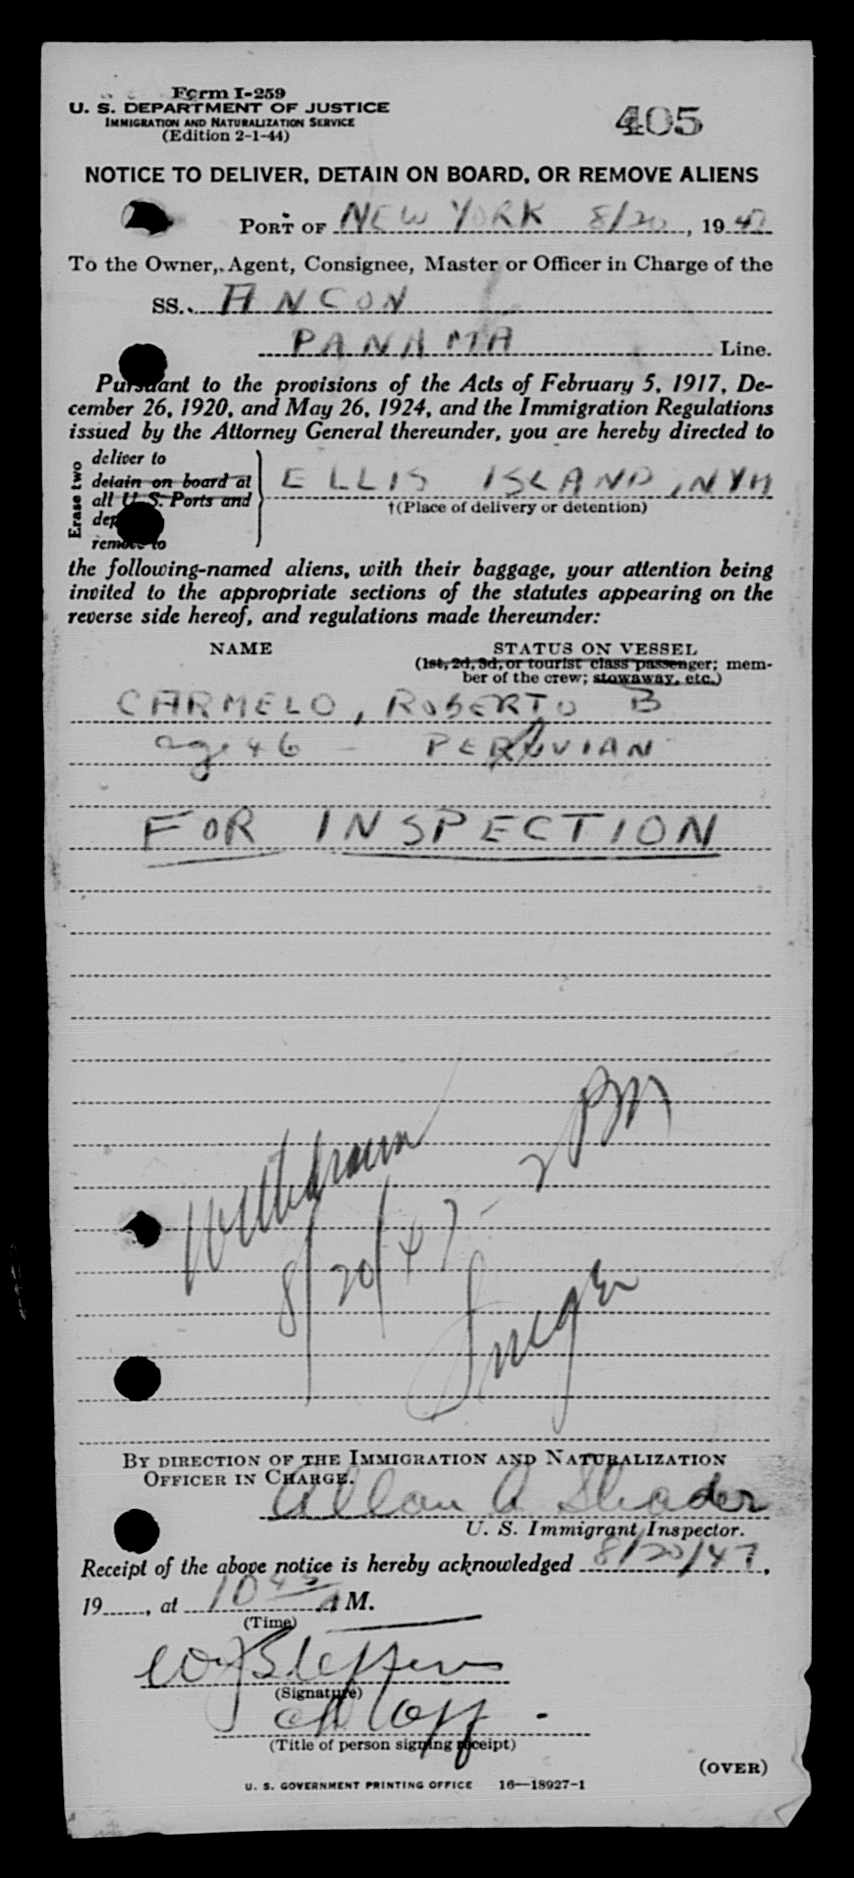 Form I-259
U. S. DEPARTMENT OF JUSTICE
IMMIGRATION AND NATURALIZATION SERVICE
(Edition 2-1-44)
405
NOTICE TO DELIVER, DETAIN ON BOARD, OR REMOVE ALIENS
PORT OF NEW YORK 8/20, 1947
To the Owner, Agent, Consignee, Master or Officer in Charge of the
SS. ANCON
PANAMA Line.
Pursuant to the provisions of the Acts of February 5, 1917, De-
cember 26, 1920, and May 26, 1924, and the Immigration Regulations
issued by the Attorney General thereunder, you are hereby directed to
Erase two
deliver to
detain on board at
all U. S. Ports and
remove to
ELLIS ISLAND, NYH
†(Place of delivery or detention)
the following-named aliens, with their baggage, your attention being
invited to the appropriate sections of the statutes appearing on the
reverse side hereof, and regulations made thereunder:
NAME STATUS ON VESSEL
(1st, 2d, 3d, or tourist class passenger; mem-
ber of the crew; stowaway, etc.)
CARMELO, ROBERTO B
age 46 - PERUVIAN
FOR INSPECTION
Withdrawn
8/20/47 - 2 PM
BY DIRECTION OF THE IMMIGRATION AND NATURALIZATION
OFFICER IN CHARGE.
Allan A Shader
U. S. Immigrant Inspector.
Receipt of the above notice is hereby acknowledged 8/20/47,
19......, at 10 45 A M.
(Time)
WJ Steffens
(Signature)
Ch Off.
(Title of person signing receipt)
(OVER)
U. S. GOVERNMENT PRINTING OFFICE 16—18927-1